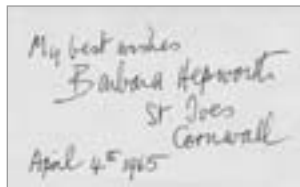 My best wishes
Barbara Hepworth
St Ives
Cornwall
April 4th 1965